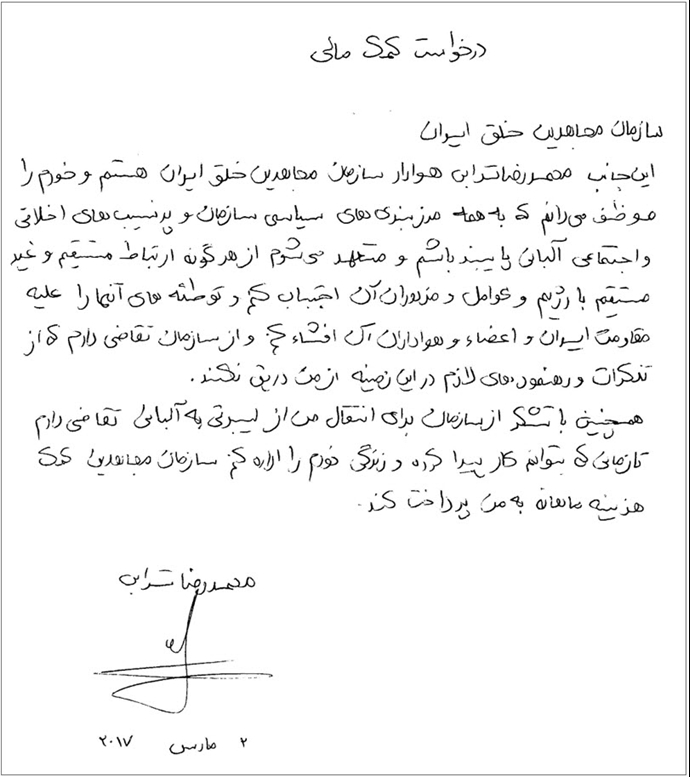 درخواست کمک مالی
سازمان مجاهدین خلق ایران
این جانب محمدرضا ترابی هوادار سازمان مجاهدین خلق ایران هستم و خودم را
موظف می‌دانم که به همه مرزبندی‌های سیاسی سازمان و پرنسیب‌های اخلاقی
و اجتماعی آلبانی پایبند باشم و متعهد می‌شوم از هرگونه ارتباط مستقیم و غیر
مستقیم با رژیم و عوامل و مزدوران آن اجتناب کنم و توطئه‌های آنها را علیه
مقاومت ایران و اعضاء و هواداران آن افشاء کنم و از سازمان تقاضی دارم که از
تذکرات و رهنمودهای لازم در این زمینه از من دریق نکند.
همچنین با تشکر از سازمان برای انتقال من از لیبرتی به آلبانی تقاضی دارم
تا زمانی که بتوانم کار پیدا کرده و زندگی خودم را اداره کنم سازمان مجاهدین کمک
هزینه ماهانه به من پرداخت کند.
محمدرضا ترابی
۲ مارس ۲۰۱۷